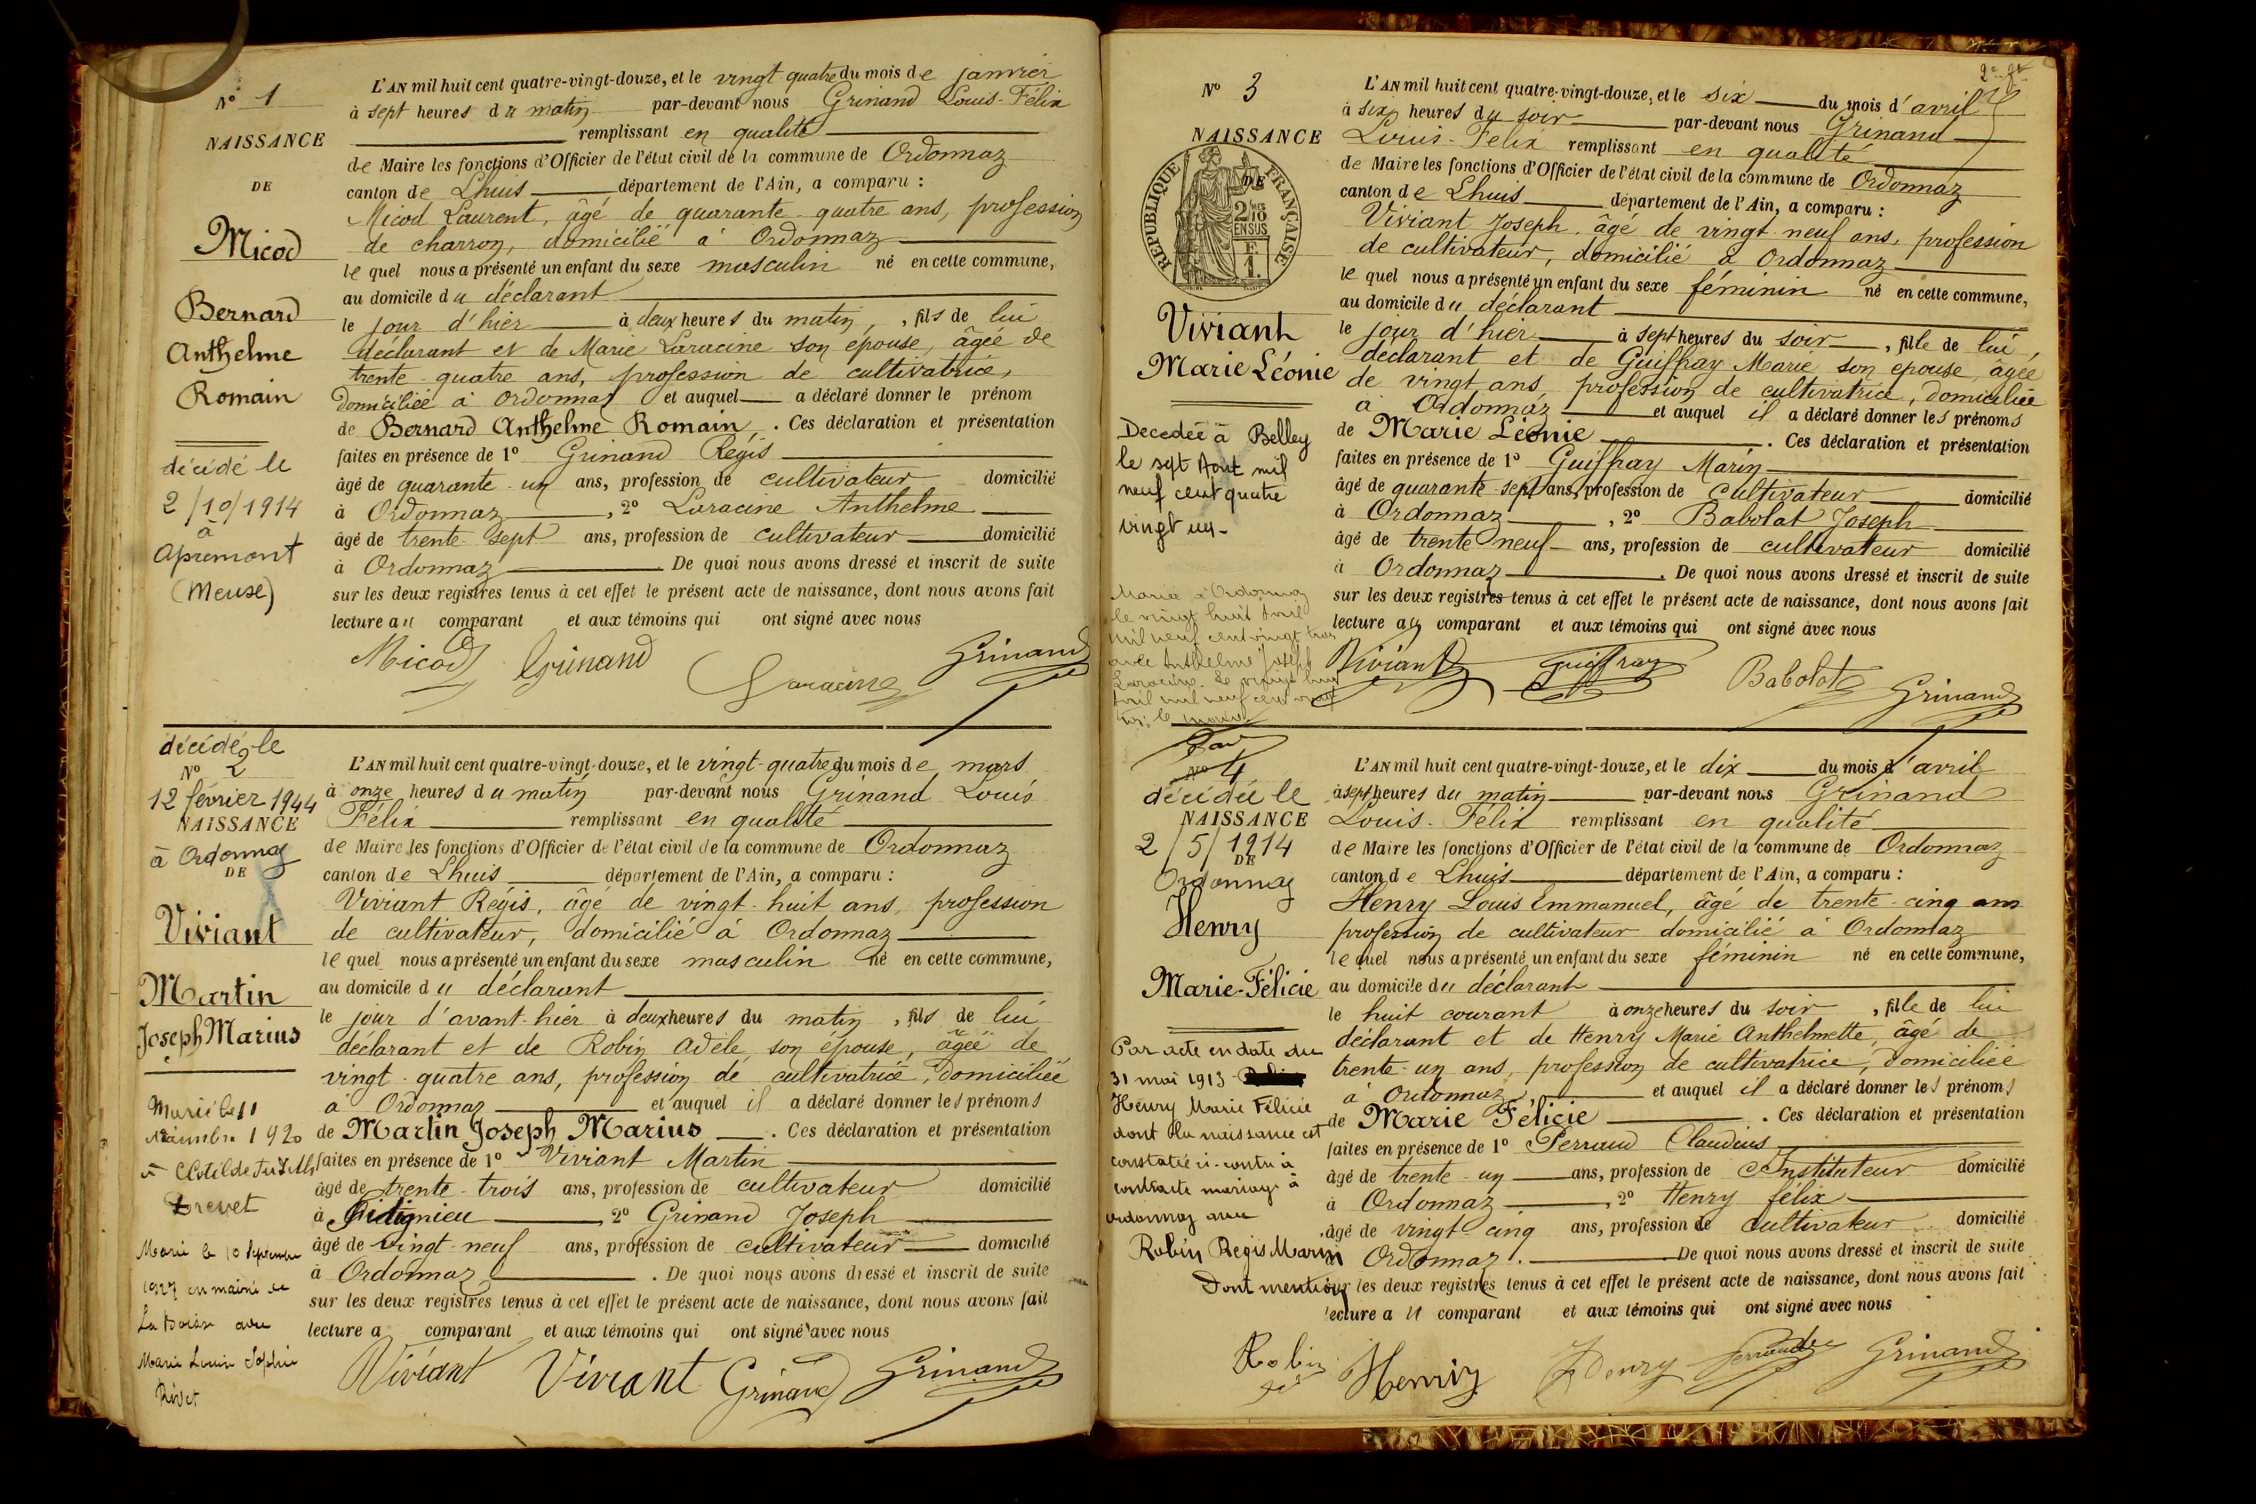 N° 1
NAISSANCE
DE
Micod
Bernard
Anthelme
Romain
décédé le
2/10/1914
à
Apremont
(Meuse)
L'AN mil huit cent quatre-vingt-douze, et le vingt quatre du mois de janvier
à sept heures du matin par-devant nous Grinand Louis-Félix
remplissant en qualité
de Maire les fonctions d'Officier de l'état civil de la commune de Ordonnaz
canton de Lhuis département de l'Ain, a comparu :
Micod Laurent, âgé de quarante-quatre ans, profession
de charron, domicilié à Ordonnaz
lequel nous a présenté un enfant du sexe masculin né en cette commune,
au domicile du déclarant
le jour d'hier à deux heures du matin, fils de lui
déclarant et de Marie Laracine son épouse, âgée de
trente-quatre ans, profession de cultivatrice,
domiciliée à Ordonnaz et auquel a déclaré donner le prénom
de Bernard Anthelme Romain. Ces déclaration et présentation
faites en présence de 1° Grinand Régis
âgé de quarante-un ans, profession de cultivateur domicilié
à Ordonnaz, 2° Laracine Anthelme
âgé de trente-sept ans, profession de cultivateur domicilié
à Ordonnaz De quoi nous avons dressé et inscrit de suite
sur les deux registres tenus à cet effet le présent acte de naissance, dont nous avons fait
lecture au comparant et aux témoins qui ont signé avec nous
Micod Grinand Laracine Grinand
décédé le
N° 2
12 février 1944
NAISSANCE
à Ordonnaz
DE
Viviant
Martin
Joseph Marius
Marié le 11
1920
à Clotilde
Marié le 10 Septembre
1927 en mairie de
avec
Marie Louise Sophie
L'AN mil huit cent quatre-vingt-douze, et le vingt-quatre du mois de mars
à onze heures du matin par-devant nous Grinand Louis
Félix remplissant en qualité
de Maire les fonctions d'Officier de l'état civil de la commune de Ordonnaz
canton de Lhuis département de l'Ain, a comparu :
Viviant Régis, âgé de vingt-huit ans, profession
de cultivateur, domicilié à Ordonnaz
lequel nous a présenté un enfant du sexe masculin né en cette commune,
au domicile du déclarant
le jour d'avant-hier à deux heures du matin, fils de lui
déclarant et de Robin Adèle son épouse, âgée de
vingt-quatre ans, profession de cultivatrice, domiciliée
à Ordonnaz et auquel il a déclaré donner les prénoms
de Martin Joseph Marius. Ces déclaration et présentation
faites en présence de 1° Viviant Martin
âgé de trente-trois ans, profession de cultivateur domicilié
à 2° Grinand Joseph
âgé de vingt-neuf ans, profession de cultivateur domicilié
à Ordonnaz. De quoi nous avons dressé et inscrit de suite
sur les deux registres tenus à cet effet le présent acte de naissance, dont nous avons fait
lecture a comparant et aux témoins qui ont signé avec nous
Viviant Viviant Grinand Grinand
N° 3
NAISSANCE
DE
RÉPUBLIQUE FRANÇAISE
2/10
EN SUS
Viviant
Marie Léonie
Decedée à Belley
le sept Aout mil
neuf cent quatre
vingt un
Mariée à Ordonnaz
le vingt huit avril
mil neuf cent vingt trois
avec Anthelme Joseph
Laracine. Le vingt huit
avril mil neuf cent vingt
trois le maire
L'AN mil huit cent quatre-vingt-douze, et le six du mois d'avril
à six heures du soir par-devant nous Grinand
Louis-Félix remplissant en qualité
de Maire les fonctions d'Officier de l'état civil de la commune de Ordonnaz
canton de Lhuis département de l'Ain, a comparu :
Viviant Joseph, âgé de vingt-neuf ans, profession
de cultivateur, domicilié à Ordonnaz
lequel nous a présenté un enfant du sexe féminin né en cette commune,
au domicile du déclarant
le jour d'hier à sept heures du soir, fille de lui,
déclarant et de Guiffray Marie son épouse, âgée
de vingt ans, profession de cultivatrice, domiciliée
à Ordonnaz et auquel il a déclaré donner les prénoms
de Marie Léonie. Ces déclaration et présentation
faites en présence de 1° Guiffray Marin
âgé de quarante-sept ans, profession de cultivateur domicilié
à Ordonnaz, 2° Babolat Joseph
âgé de trente neuf ans, profession de cultivateur domicilié
à Ordonnaz. De quoi nous avons dressé et inscrit de suite
sur les deux registres tenus à cet effet le présent acte de naissance, dont nous avons fait
lecture au comparant et aux témoins qui ont signé avec nous
Viviant Guiffray Babolat Grinand
N° 4
décédée le
NAISSANCE
2/5/1914
DE
Ordonnaz
Henry
Marie-Félicie
Par acte en date du
31 mai 1913
Henry Marie Félicie
dont la naissance est
constatée ci-contre à
contracté mariage à
Ordonnaz avec
Robin Régis Marin
Dont mention
Robin
L'AN mil huit cent quatre-vingt-douze, et le dix du mois d'avril
à sept heures du matin par-devant nous Grinand
Louis-Félix remplissant en qualité
de Maire les fonctions d'Officier de l'état civil de la commune de Ordonnaz
canton de Lhuis département de l'Ain, a comparu :
Henry Louis Emmanuel, âgé de trente-cinq ans
profession de cultivateur domicilié à Ordonnaz
lequel nous a présenté un enfant du sexe féminin né en cette commune,
au domicile du déclarant
le huit courant à onze heures du soir, fille de lui
déclarant et de Henry Marie Anthelmette, âgé de
trente-un ans, profession de cultivatrice, domiciliée
à Ordonnaz, et auquel il a déclaré donner les prénoms
de Marie Félicie. Ces déclaration et présentation
faites en présence de 1° Perraud Claudius
âgé de trente-un ans, profession de Instituteur domicilié
à Ordonnaz, 2° Henry félix
âgé de vingt-cinq ans, profession de cultivateur domicilié
à Ordonnaz. De quoi nous avons dressé et inscrit de suite
sur les deux registres tenus à cet effet le présent acte de naissance, dont nous avons fait
lecture au comparant et aux témoins qui ont signé avec nous
Henry Henry Grinand